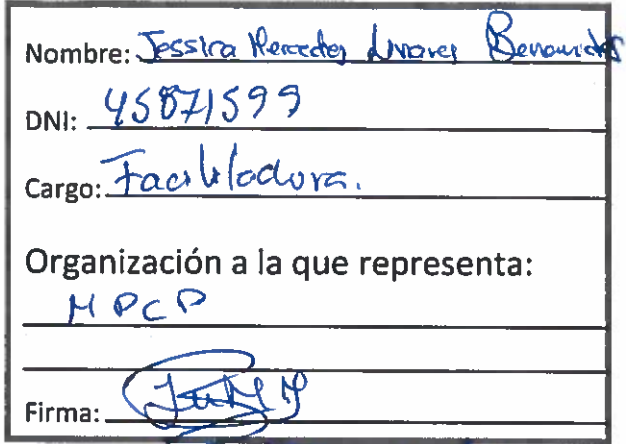 Nombre: Jessica Mercedes Linares Benavides
DNI: 45871599
Cargo: Facilitadora.
Organización a la que representa:
MPCP
Firma: